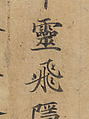 靈飛隱